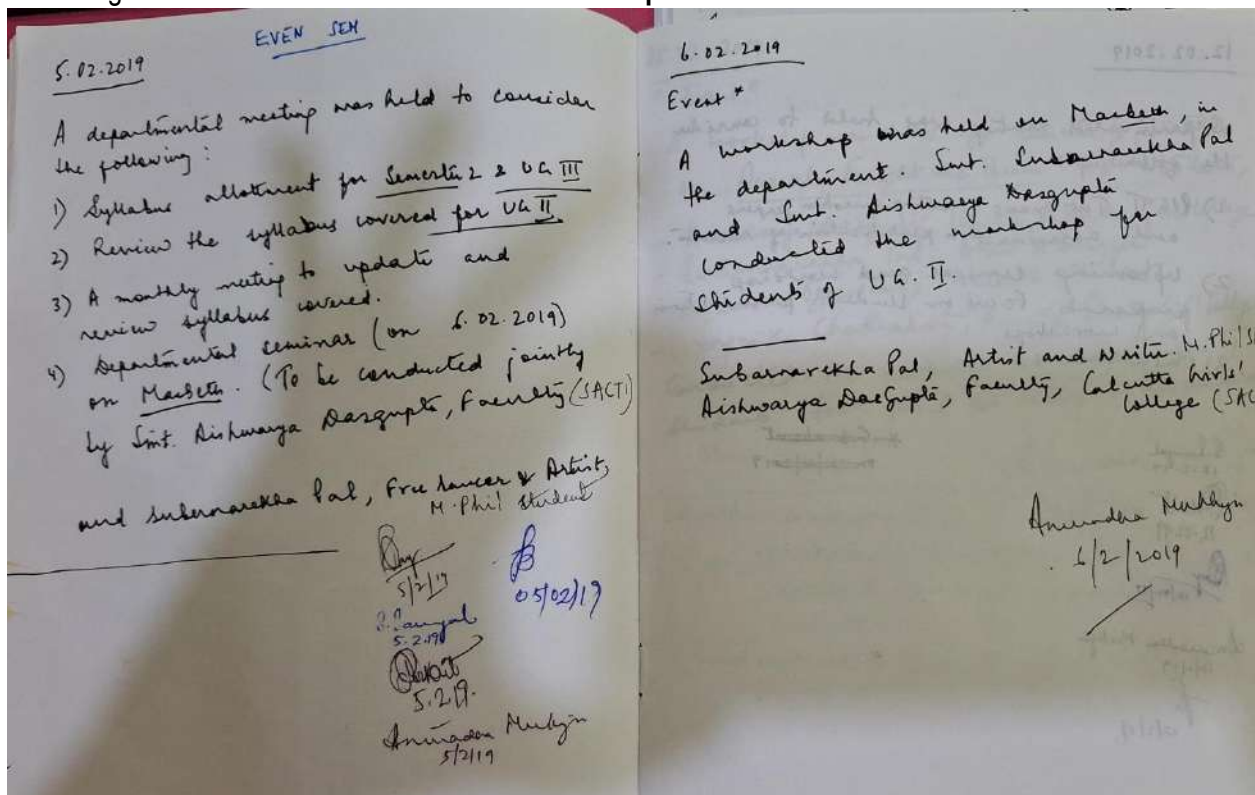 EVEN SEM
5.02.2019
A departmental meeting was held to consider
the following :
1) Syllabus allotment for Semester 2 & UG III
2) Review the syllabus covered for UG II.
3) A monthly meeting to update and
review syllabus covered.
4) Departmental seminar (on 6.02.2019)
on Macbeth. (To be conducted jointly
by Smt. Aishwarya Dasgupta, Faculty (SACT1)
and Subarnarekha Pal, Free lancer & Artist,
M.Phil student
5/2/19
05/02/19
5.2.19
5.2.19.
Anuradha Mukhyn
5/2/19
6.02.2019
Event *
A workshop was held on Macbeth, in
the department. Smt. Subarnarekha Pal
and Smt. Aishwarya Dasgupta
conducted the workshop for
students of UG. II
Subarnarekha Pal, Artist and Writer. M.Phil
Aishwarya DasGupta, Faculty, Calcutta Girls'
College (SAC
Anuradha Mukhyn
6/2/2019